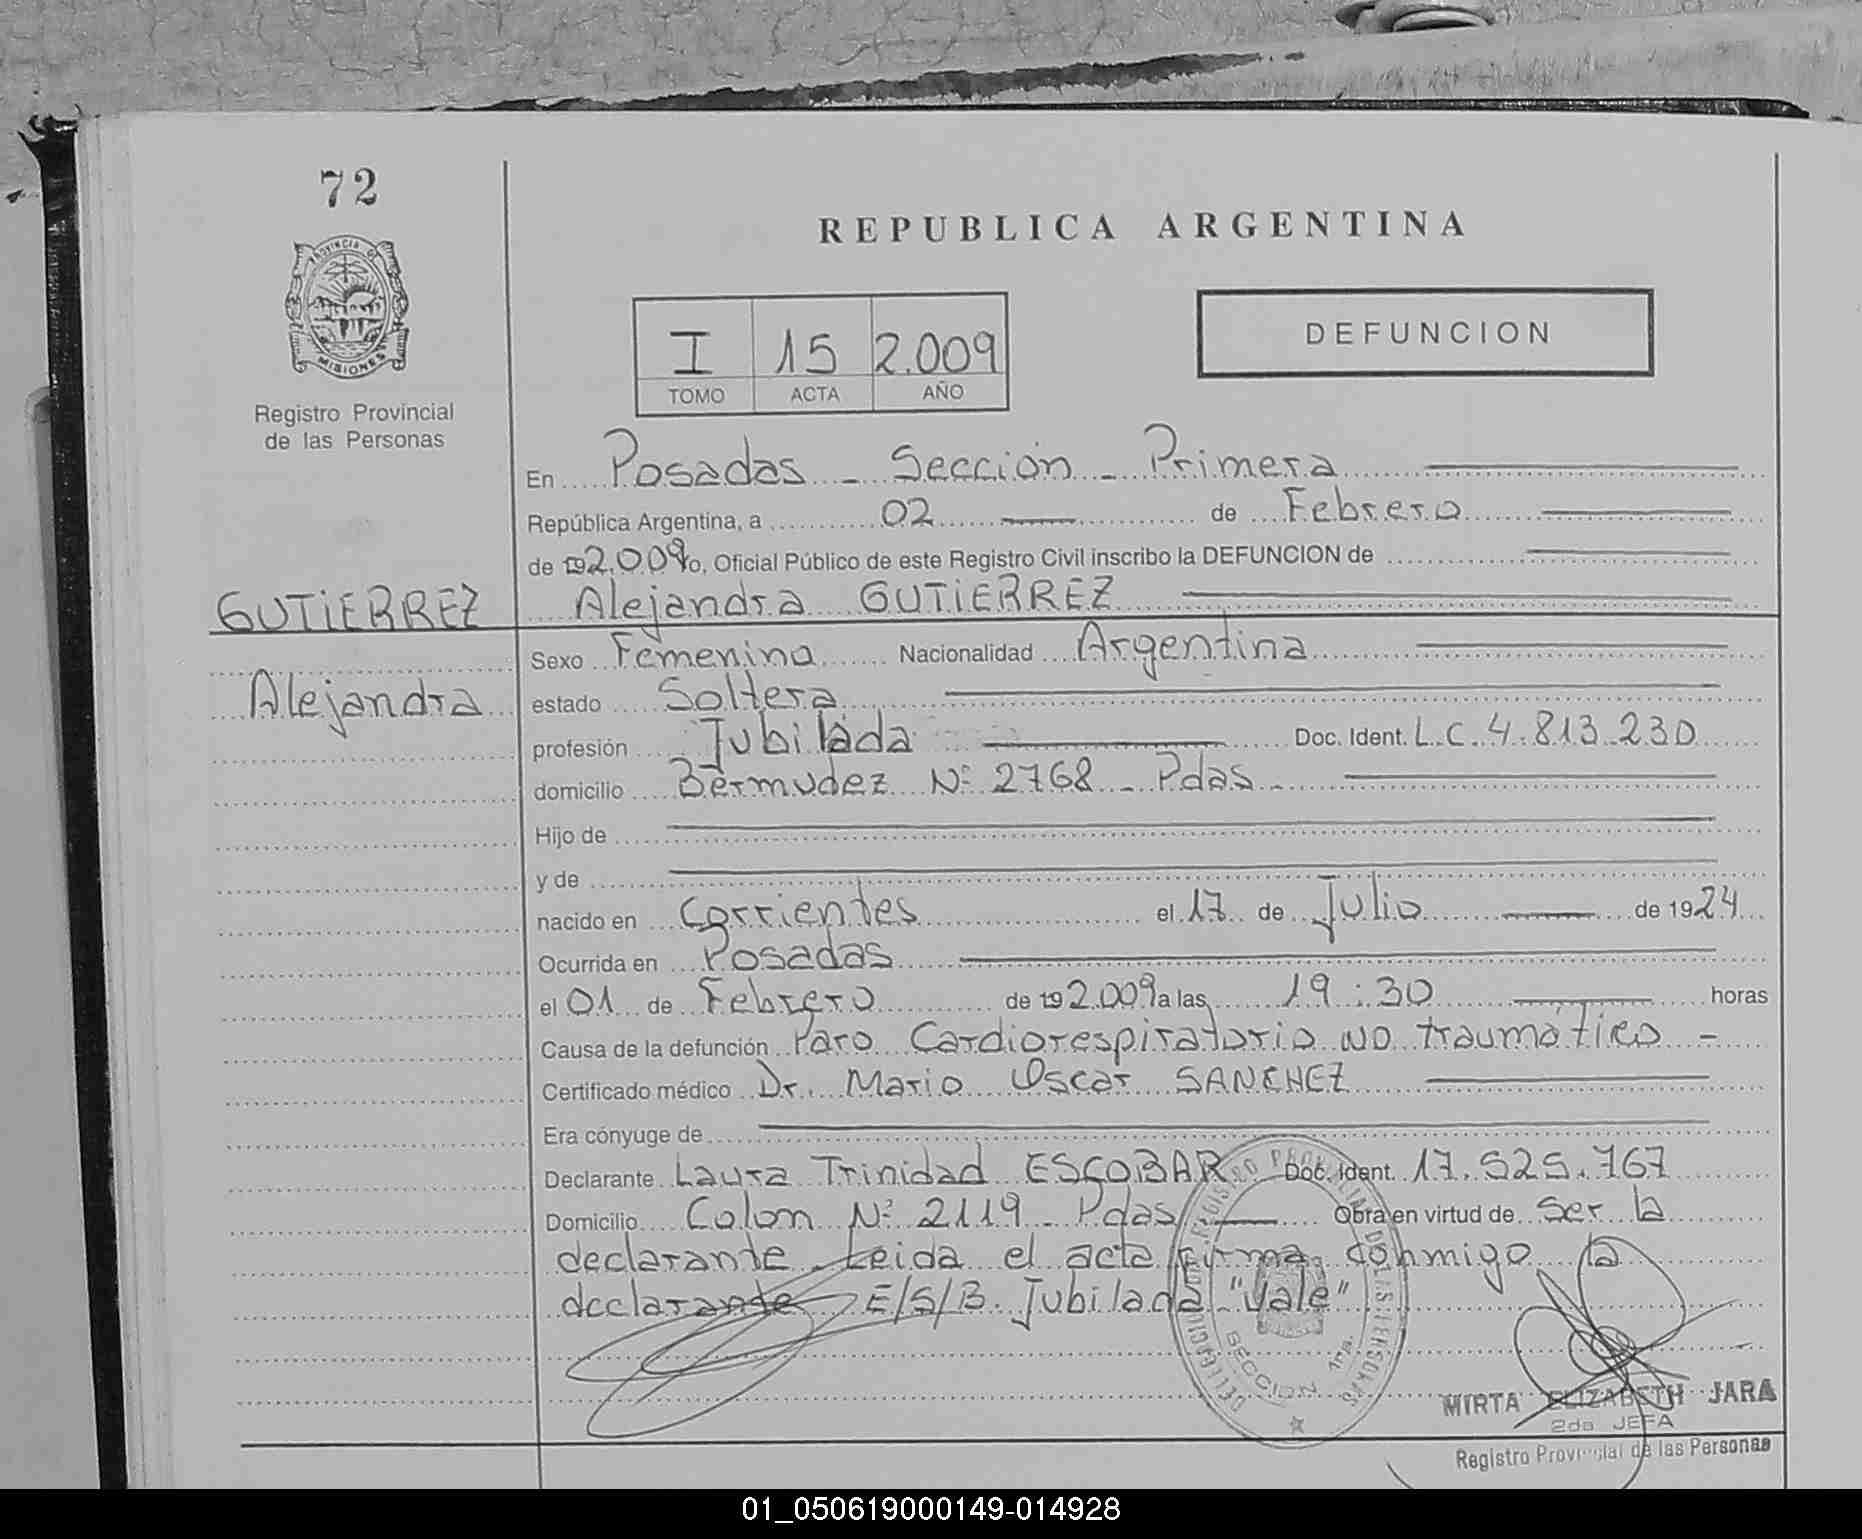 72
PROVINCIA DE
MISIONES
Registro Provincial
de las Personas
REPUBLICA ARGENTINA
I 15 2.009
TOMO ACTA AÑO
DEFUNCION
En Posadas - Sección - Primera
República Argentina, a 02 de Febrero
de 19 2.009 yo, Oficial Público de este Registro Civil inscribo la DEFUNCION de
GUTIERREZ Alejandra GUTIERREZ
Sexo Femenino Nacionalidad Argentina
Alejandra estado Soltera
profesión Jubilada Doc. Ident. L.C. 4.813.230
domicilio Bermudez Nº 2768 - Pdas -
Hijo de
y de
nacido en Corrientes el 17 de Julio de 1924
Ocurrida en Posadas
el 01 de Febrero de 19 2.009 a las 19:30 horas
Causa de la defunción Paro Cardiorespiratorio NO traumático -
Certificado médico Dr. Mario Oscar SANCHEZ
Era cónyuge de
Declarante Laura Trinidad ESCOBAR Doc. Ident. 17.525.767
Domicilio Colon Nº 2119 - Pdas Obra en virtud de Ser la
declarante - Leida el acta firma conmigo la
declarante E/S/B. Jubilada "Vale"
DELEGACION REGISTRO PROVINCIAL DE LAS PERSONAS
SECCION 1ra.
MIRTA ELIZABETH JARA
2da JEFA
Registro Provincial de las Personas
01_050619000149-014928